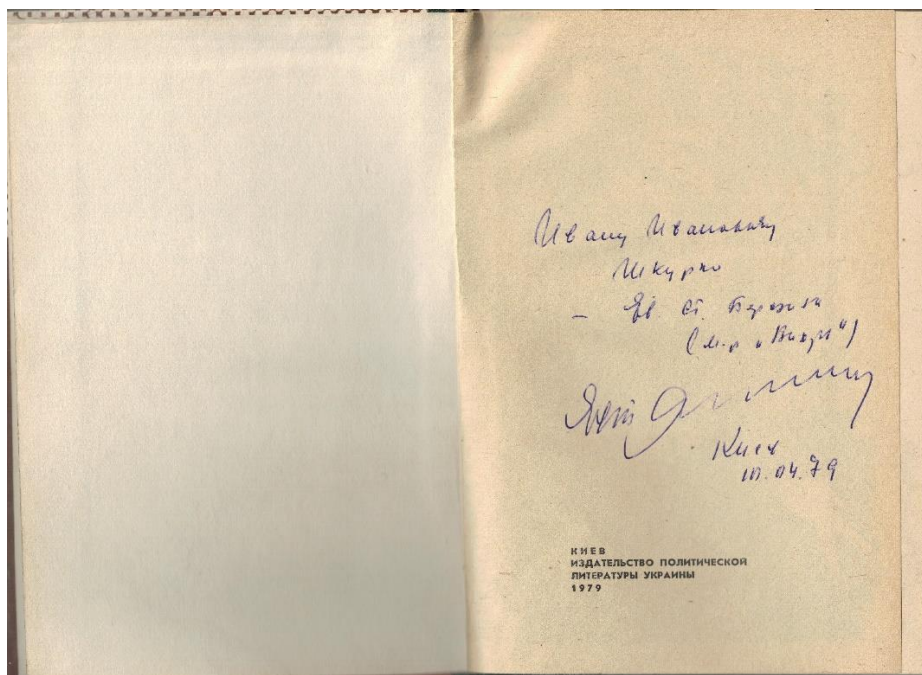 Ивану Ивановичу
Шкурко
— Ев. ст. Березняк
(м-р „Вихрь“)
Киев
10.04.79
КИЕВ
ИЗДАТЕЛЬСТВО ПОЛИТИЧЕСКОЙ
ЛИТЕРАТУРЫ УКРАИНЫ
1979